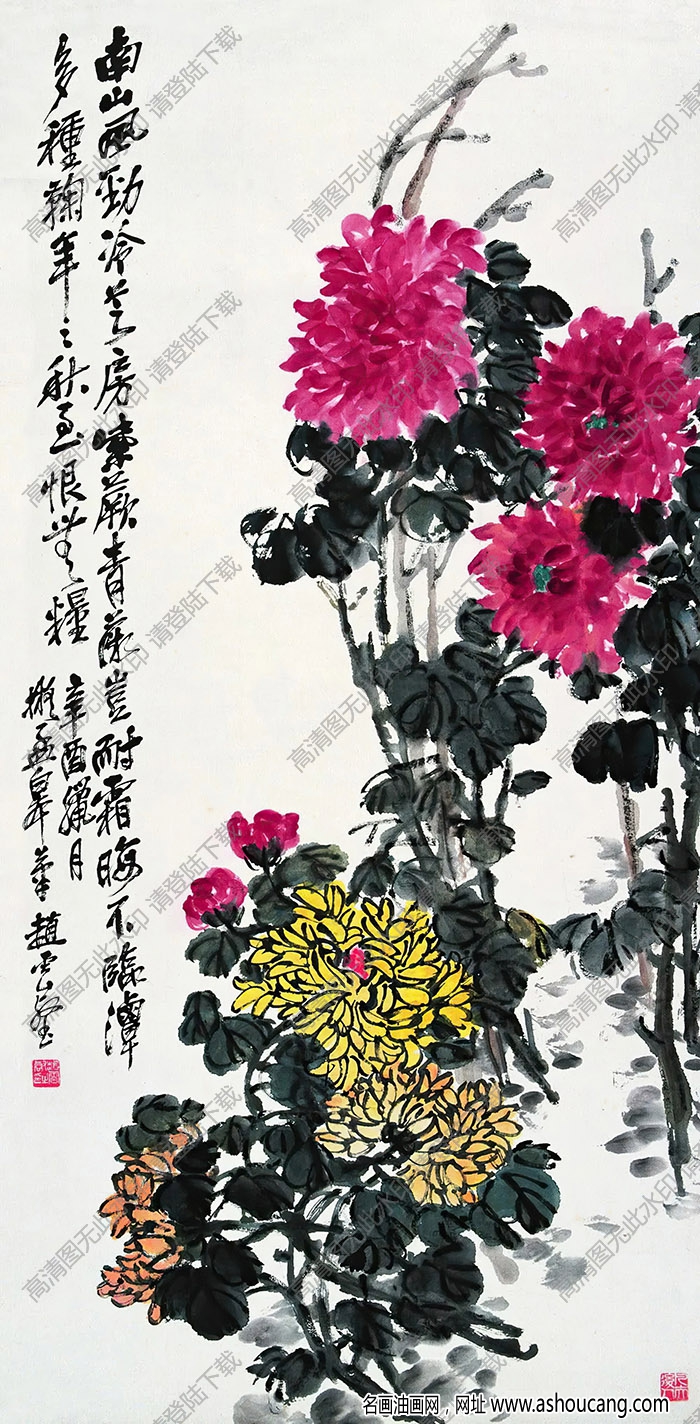 南山風勁冷芝房嗅蕨青薇豈耐霜晦不臨潭
多種鞠年〻秋至恨無糧
辛酉臘月
擬缶翁筆趙雲壑
高清图无此水印 请登陆下载
名画油画网，网址 www.ashoucang.com